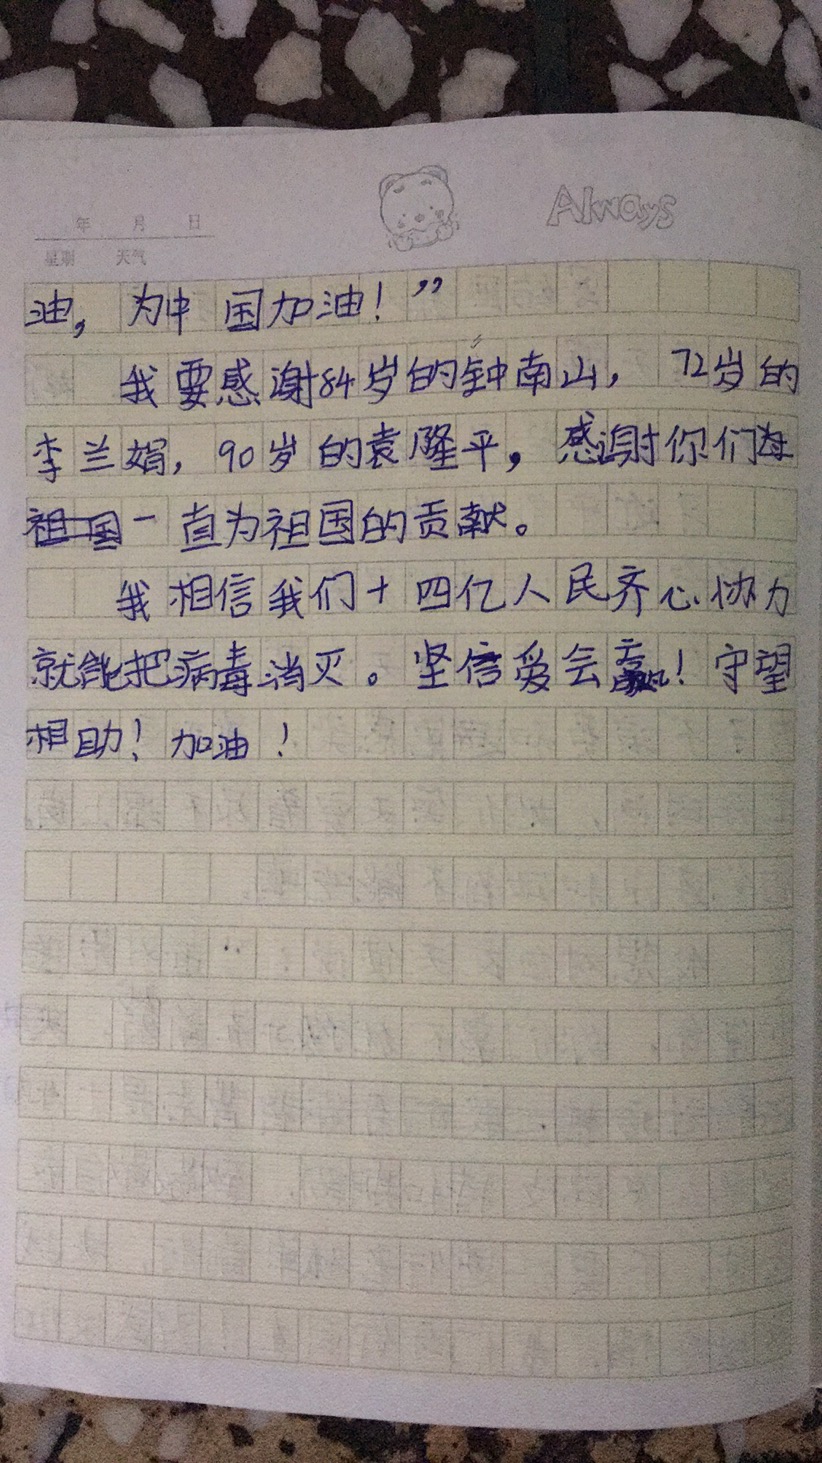 年 月 日
Always
星期 天气
油，为中国加油！”
我要感谢84岁的钟南山，72岁的
李兰娟，90岁的袁隆平，感谢你们
祖国一直为祖国的贡献。
我相信我们十四亿人民齐心协力
就能把病毒消灭。坚信爱会赢！守望
相助！加油！